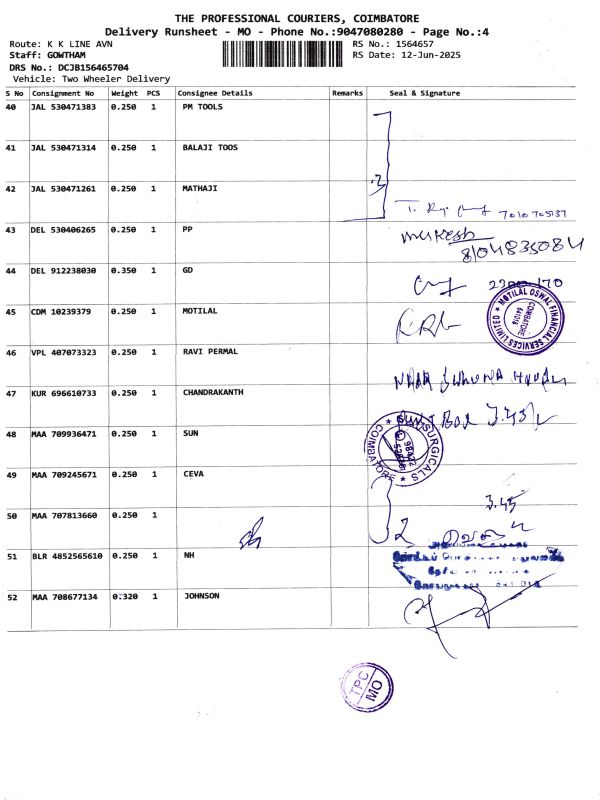 THE PROFESSIONAL COURIERS, COIMBATORE
Delivery Runsheet - MO - Phone No.:9047080280 - Page No.:4
Route: K K LINE AVN RS No.: 1564657
Staff: GOWTHAM RS Date: 12-Jun-2025
DRS No.: DCJB156465704
Vehicle: Two Wheeler Delivery
S No Consignment No Weight PCS Consignee Details Remarks Seal & Signature
40 JAL 530471383 0.250 1 PM TOOLS
41 JAL 530471314 0.250 1 BALAJI TOOS
42 JAL 530471261 0.250 1 MATHAJI
3
7010705137
43 DEL 530406265 0.250 1 PP
mukesh
8104835084
44 DEL 912238030 0.350 1 GD
45 CDM 10239379 0.250 1 MOTILAL
MOTILAL OSWAL FINANCIAL SERVICES LIMITED ★ COIMBATORE 641018
46 VPL 407073323 0.250 1 RAVI PERMAL
47 KUR 696610733 0.250 1 CHANDRAKANTH
3.45
48 MAA 709936471 0.250 1 SUN
SUN SURGICALS ★ COIMBATORE ★
49 MAA 709245671 0.250 1 CEVA
3.45
50 MAA 707813660 0.250 1
2
51 BLR 4852565610 0.250 1 NH
52 MAA 708677134 0.320 1 JOHNSON
TPC
MO